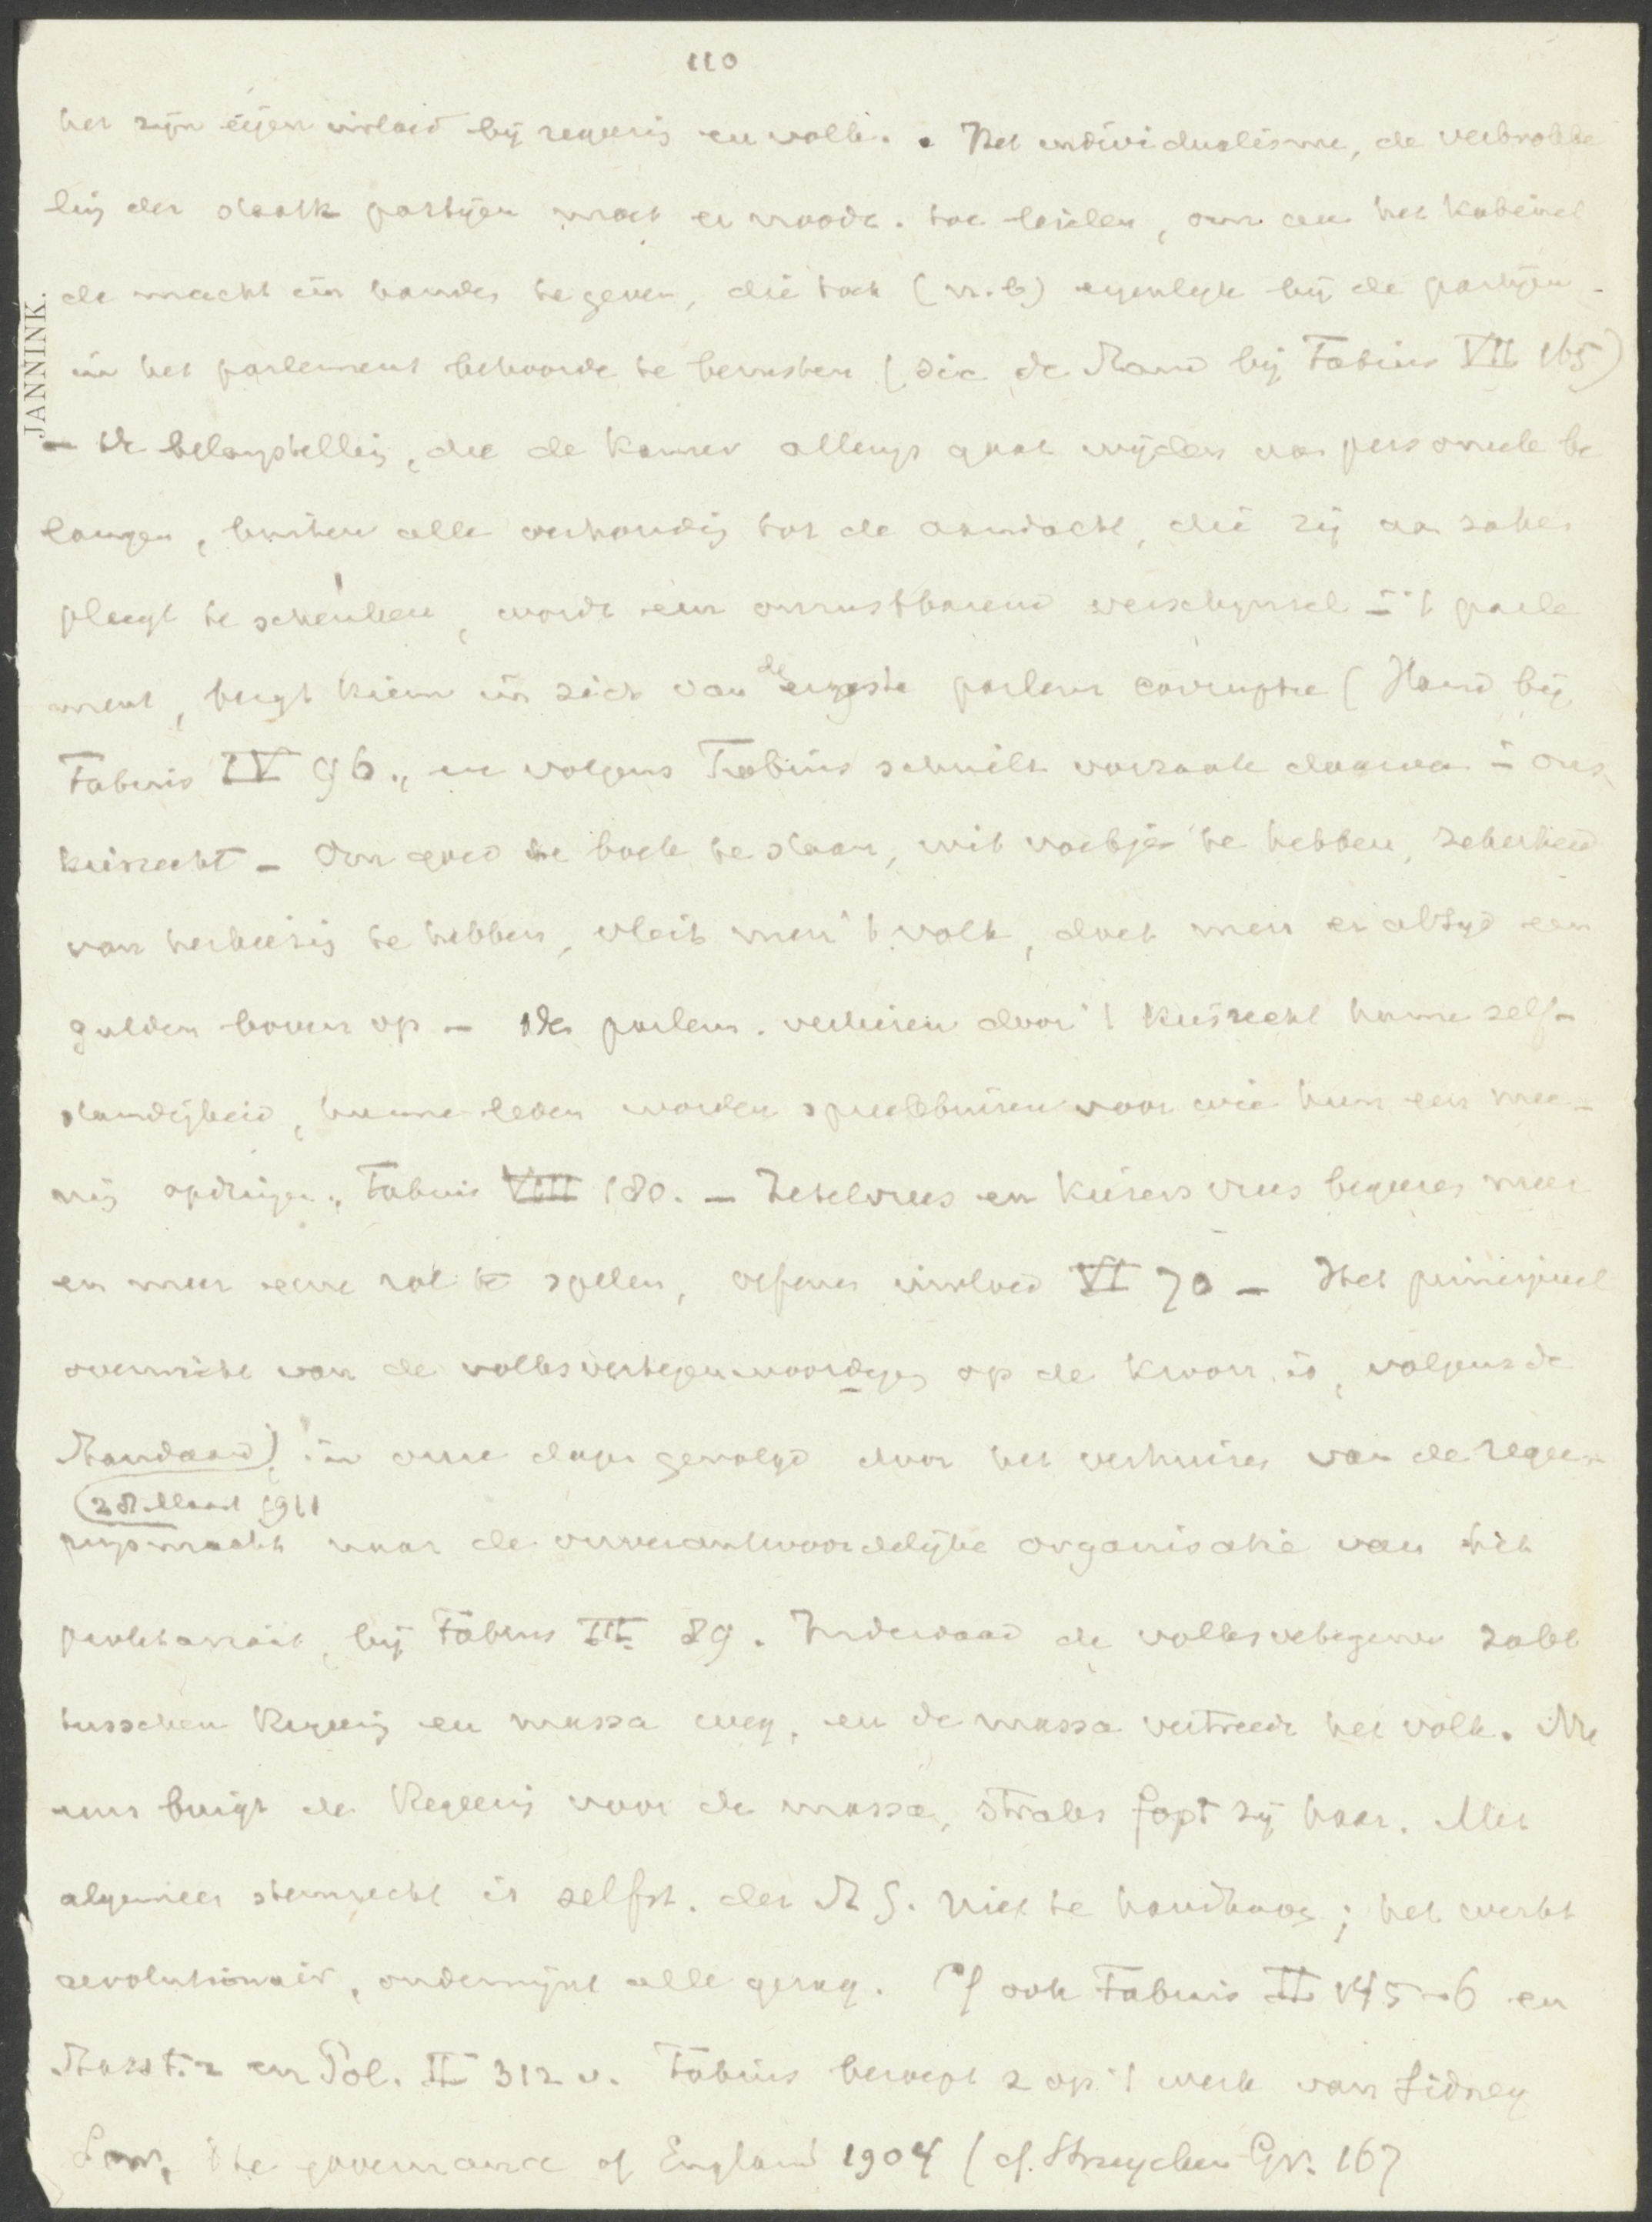 110
het zijn eigen invloed bij regeerig en volk. . Het individualisme, de verbrokke
lig der staatk partijen moet er noodz. toe leiden, om aan het kabinet
de macht in handen te geven, die toch (n.b) eigenlijk bij de partijen
in het parlement behoorde te berusten (zie de Stand bij Fabius VII 165)
JANNINK.
– De belangstellig, die de Kamer allengs gaat wijden aan personeele be
langen, buiten alle verhoudig tot de aandacht, die zij aan zaken
pleegt te schenken, wordt een onrustbarend verschijnsel i 't parle
ment, bergt kiem in zich van de ergste parlem corruptie (Stand bij
Fabius IV 96., en volgens Fabius schuilt oorzaak daarvan i ons
kiesrecht – Om goed te boek te staan, wit voetje te hebben, zekerheid
van herkiezig te hebben, vleit men 't volk, doet men er altijd een
gulden boven op – De parlem. verliezen door 't kiesrecht hunne zelf-
standigheid, hunne leden worden spreekbuizen voor wie hun een mee-
nig opdringen. Fabius VIII 180. – Zetelvrees en kiezersvrees beginnen meer
en meer eene rol te spelen, oefenen invloed VI 70 – Het principieel
overwicht van de volksvertegenwoordigig op de kroon is, volgens de
Standaard) in onze dagen gevolgd door het verhuizen van de regee-
(28 Maart 1911
ringsmacht naar de onverantwoordelijke organisatie van het
proletariaat, bij Fabius III 89. Inderdaad de volksvertegenw zakt
tusschen Regeerig en massa weg, en de massa vertreedt het volk. Nu
eens buigt de Regeerig voor de massa, straks fopt zij haar. Met
algemeen stemrecht is zelfst. der St G. niet te handhaven; het werkt
revolutionair, ondermijnt alle gezag. Cf ook Fabius II 145-6 en
Staatk. en Pol. II 312 v. Fabius beroept z op 't werk van Sidney
Low, the governance of England 1904 (cf. Struycken Gr. 167